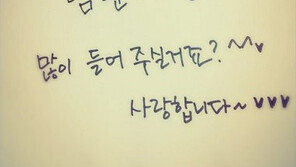 많이 들어 주실거죠?~♥
사랑합니다~♥♥♥